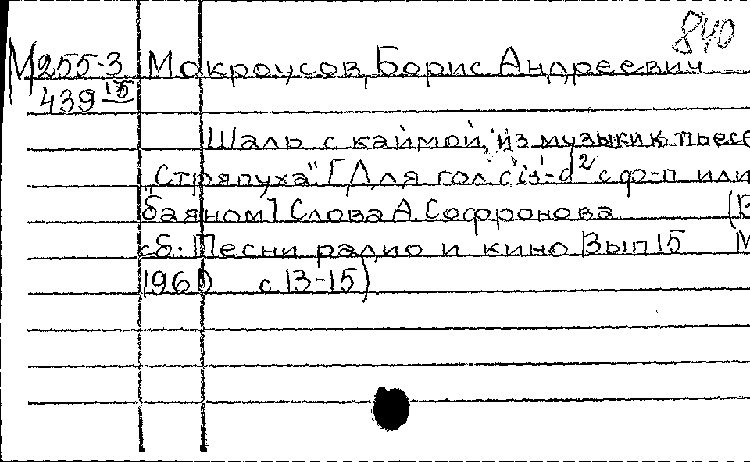 840
М255-3 Мокроусов, Борис Андреевич
439
Шаль с каймой, из музыки к пьесе
"Стряпуха". [Для гол. cis¹-d² с ф-п или
баяном] Слова А. Софронова (В
сб.: Песни радио и кино Вып 15 М
1961) с 13-15)